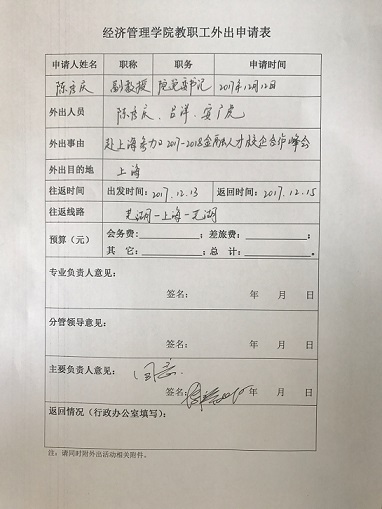 经济管理学院教职工外出申请表
申请人姓名 职称 职务 申请时间
陈彦庆 副教授 院党委书记 2017年12月12日
外出人员 陈彦庆、吕洋、安广虎
外出事由 赴上海参加2017-2018金融人才校企合作峰会
外出目的地 上海
往返时间 出发时间：2017.12.13 返回时间：2017.12.15
往返线路 芜湖－上海－芜湖
预算（元） 会务费：；差旅费：；
其 它：；总 计：。
专业负责人意见：
签名： 年 月 日
分管领导意见：
签名： 年 月 日
主要负责人意见： 同意
签名： 年 月 日
返回情况（行政办公室填写）：
注：请同时附外出活动相关附件。